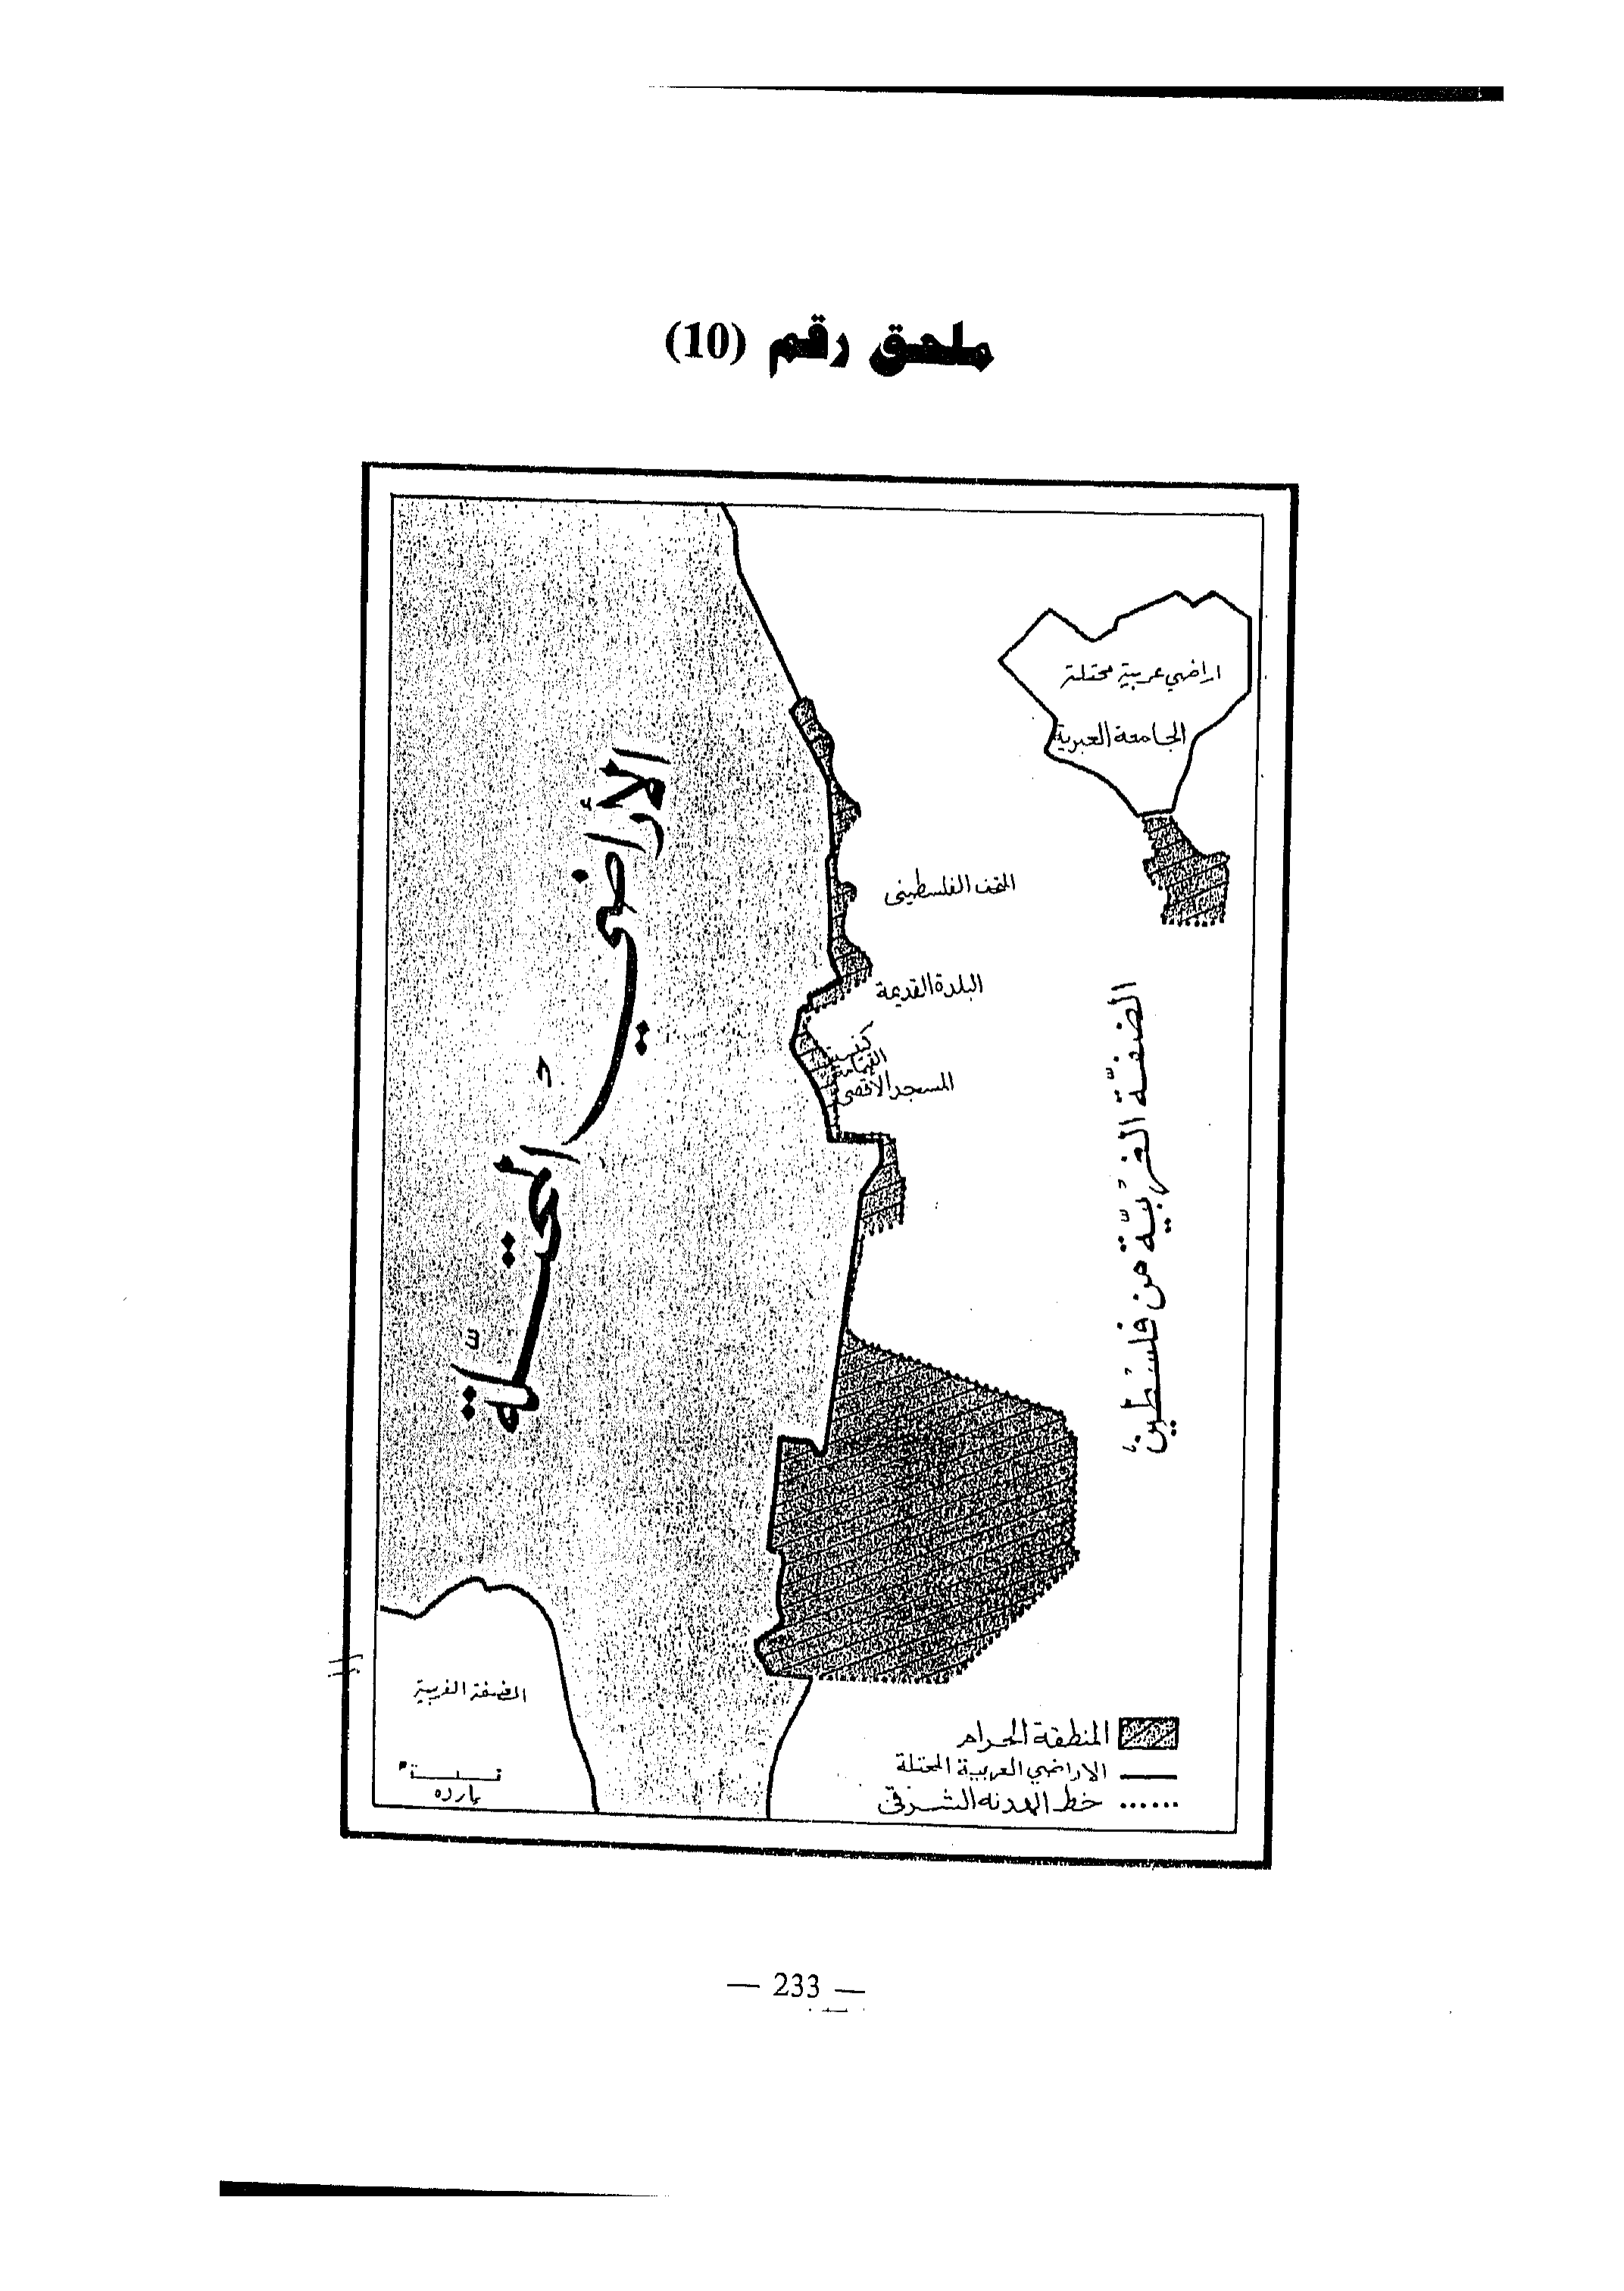 ملحق رقم (10)
اراضي عربية محتلة
الجامعة العبرية
الأراضي المحتلة
المتحف الفلسطيني
البلدة القديمة
كنيسة
القيامة
المسجد الاقصى
الضفّة الغربيّة من فلسطين
الضفة الغربية
ياردة
المنطقة الحرام
الاراضي العربية المحتلة
خط الهدنه الشرقي
— 233 —